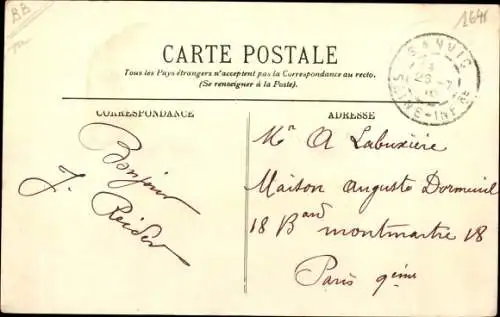 BB
1641
CARTE POSTALE
Tous les Pays étrangers n'acceptent pas la Correspondance au recto.
(Se renseigner à la Poste).
SANVIC
23 -7
SEINE-INFRE
CORRESPONDANCE
ADRESSE
Bonjour
J. Reider
Mr A Labuxière
Maison Auguste Dormeuil
18 Bard montmartre 18
Paris 9ème